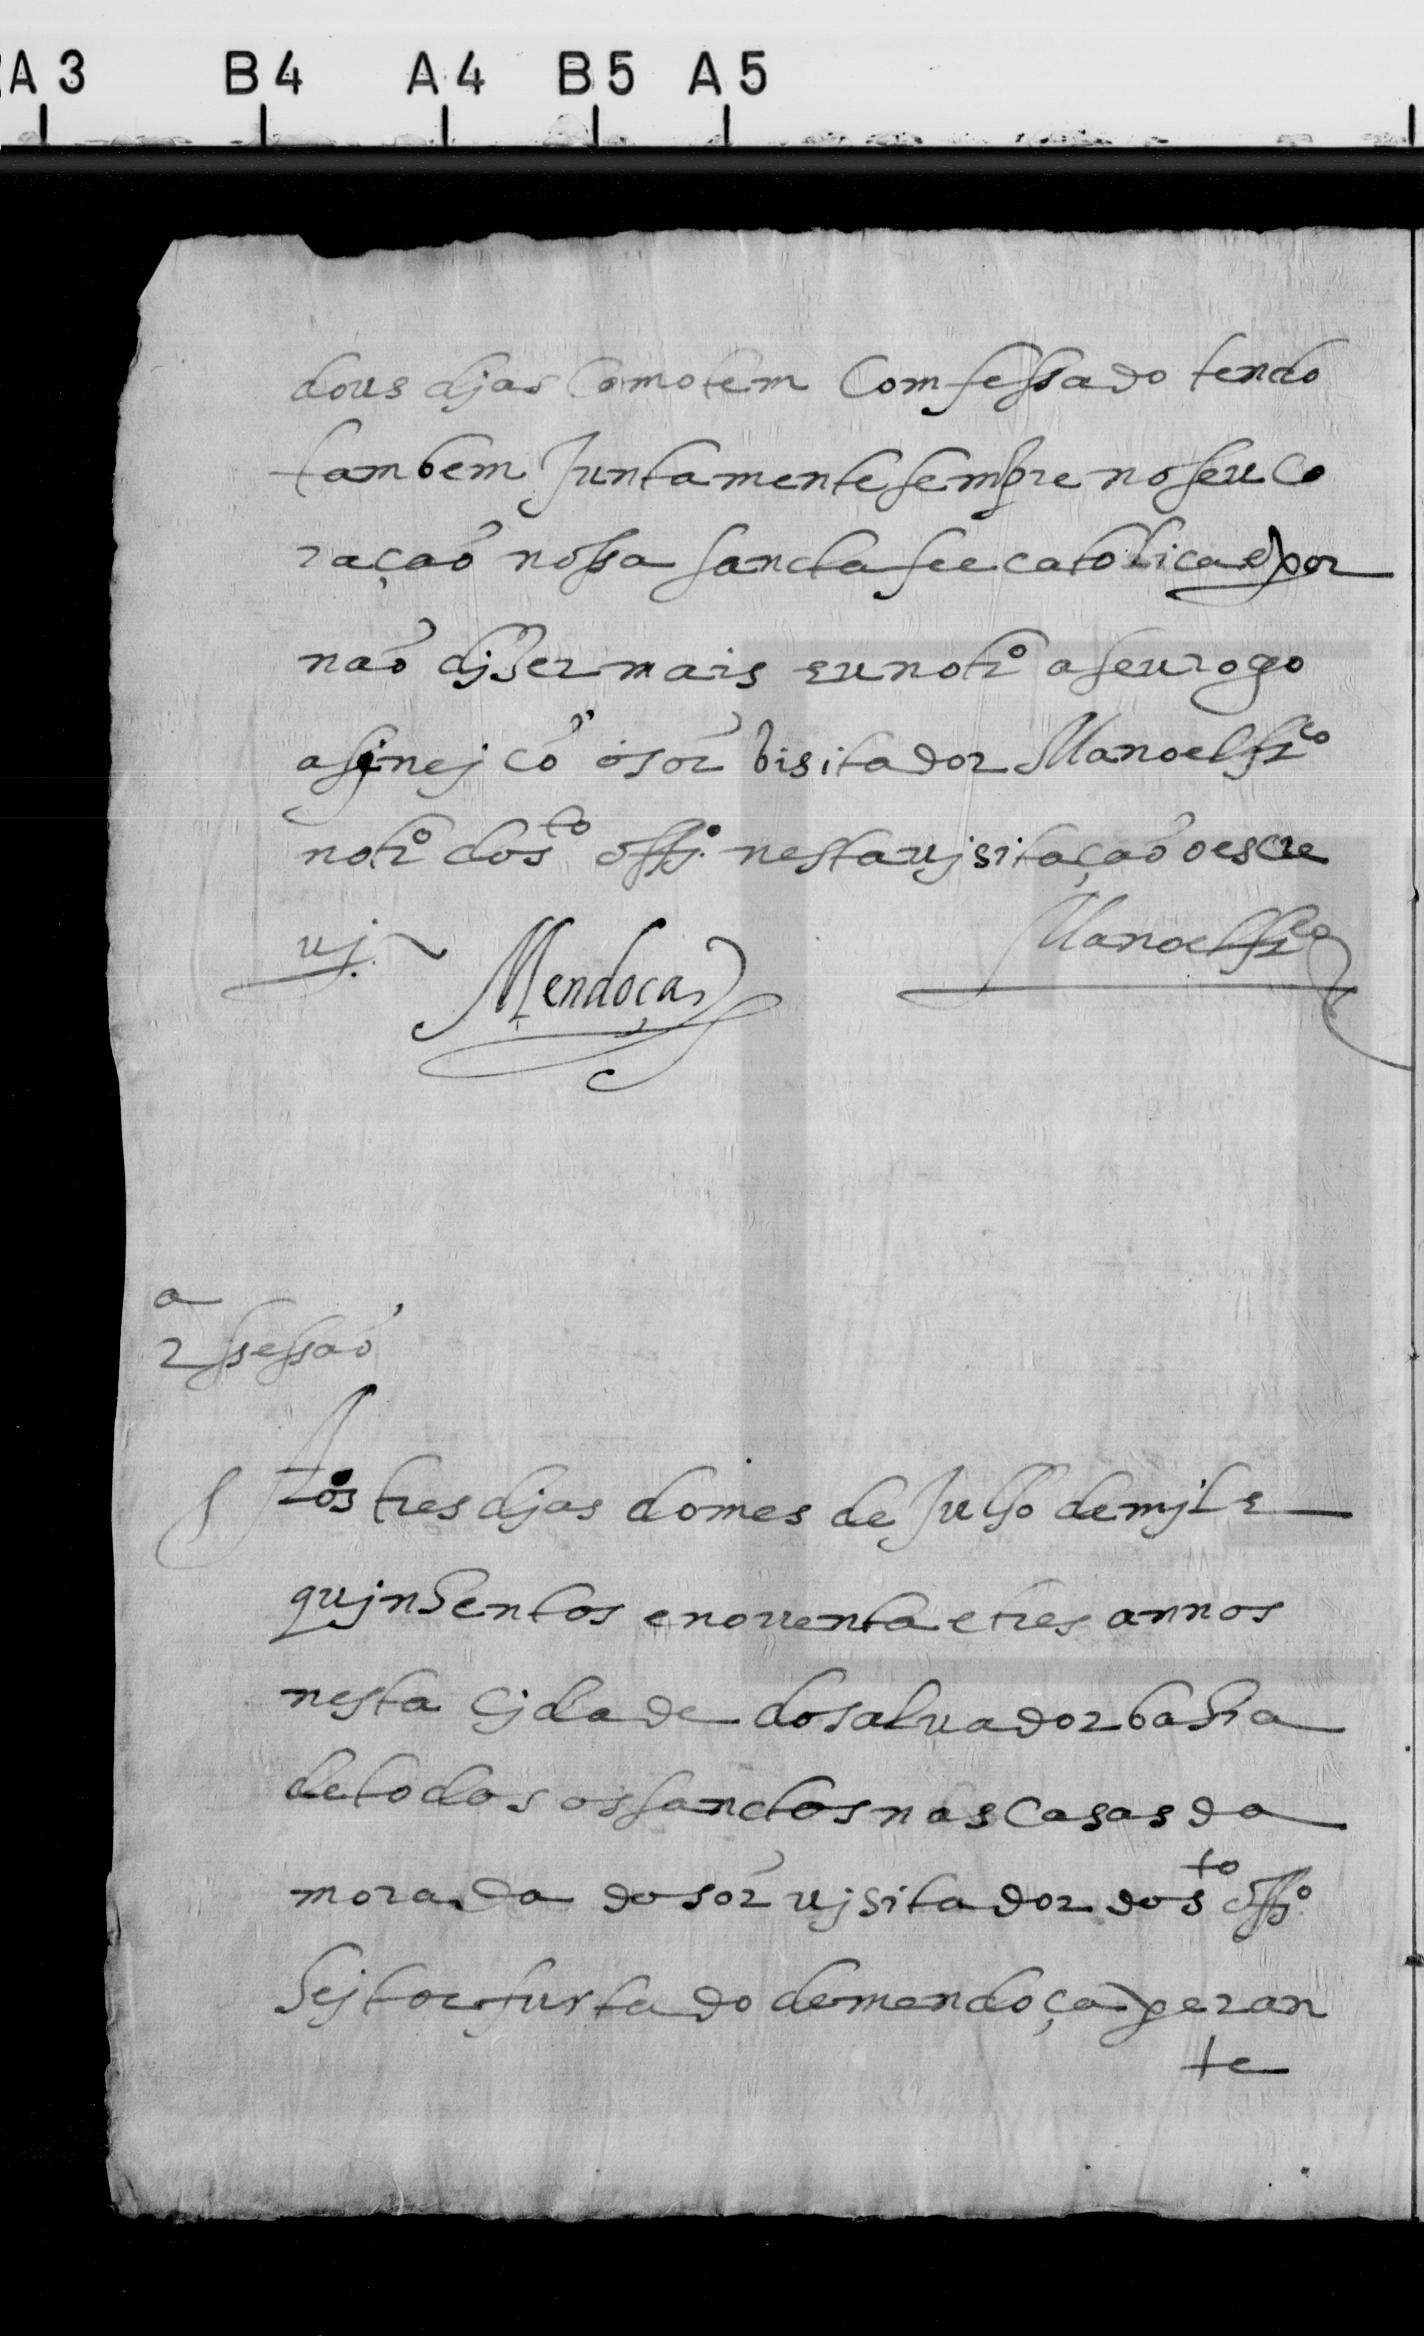 A3 B4 A4 B5 A5
dous djas Como tem Comfessado tendo
tambem Juntamente sempre no seu Co
raçaõ nossa sancta fee catolica e por
naõ djzer mais eu notr.º a seu rogo
asinej cõ o sõr bisitador Manoel fr.co
notr.º do s.to offj.º nesta vjsitaçaõ o escre
vj. ~ Mendoça Manoel fr.co
2.a ssessaõ
Aos tres djas do mes de Julho de mjl e
qujnhentos e noventa e tres annos
nesta Cjdade do saluador bahia
de todos os sanctos nas casas da
morada do sõr vjsitador do s.to offj.º
hejtor furtado de mendoça peran
te